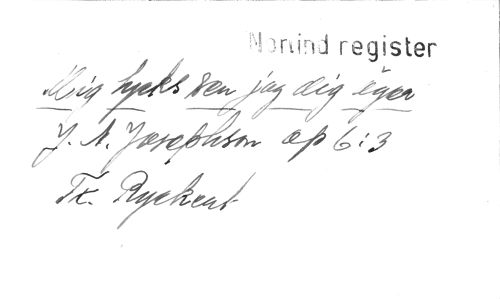 Nomind register
Mig tycks än jag dig äger
J. A. Josephson op 6:3
Fr. Ryckent